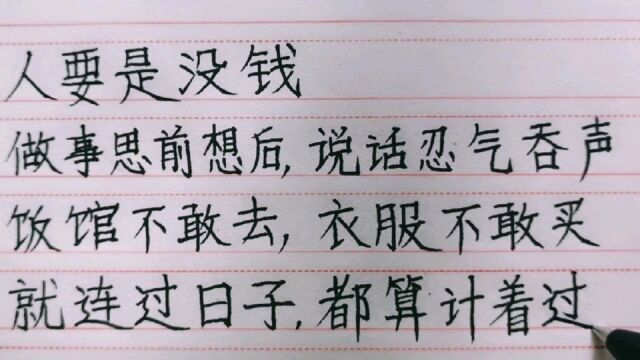 人要是没钱
做事思前想后,说话忍气吞声
饭馆不敢去,衣服不敢买
就连过日子,都算计着过